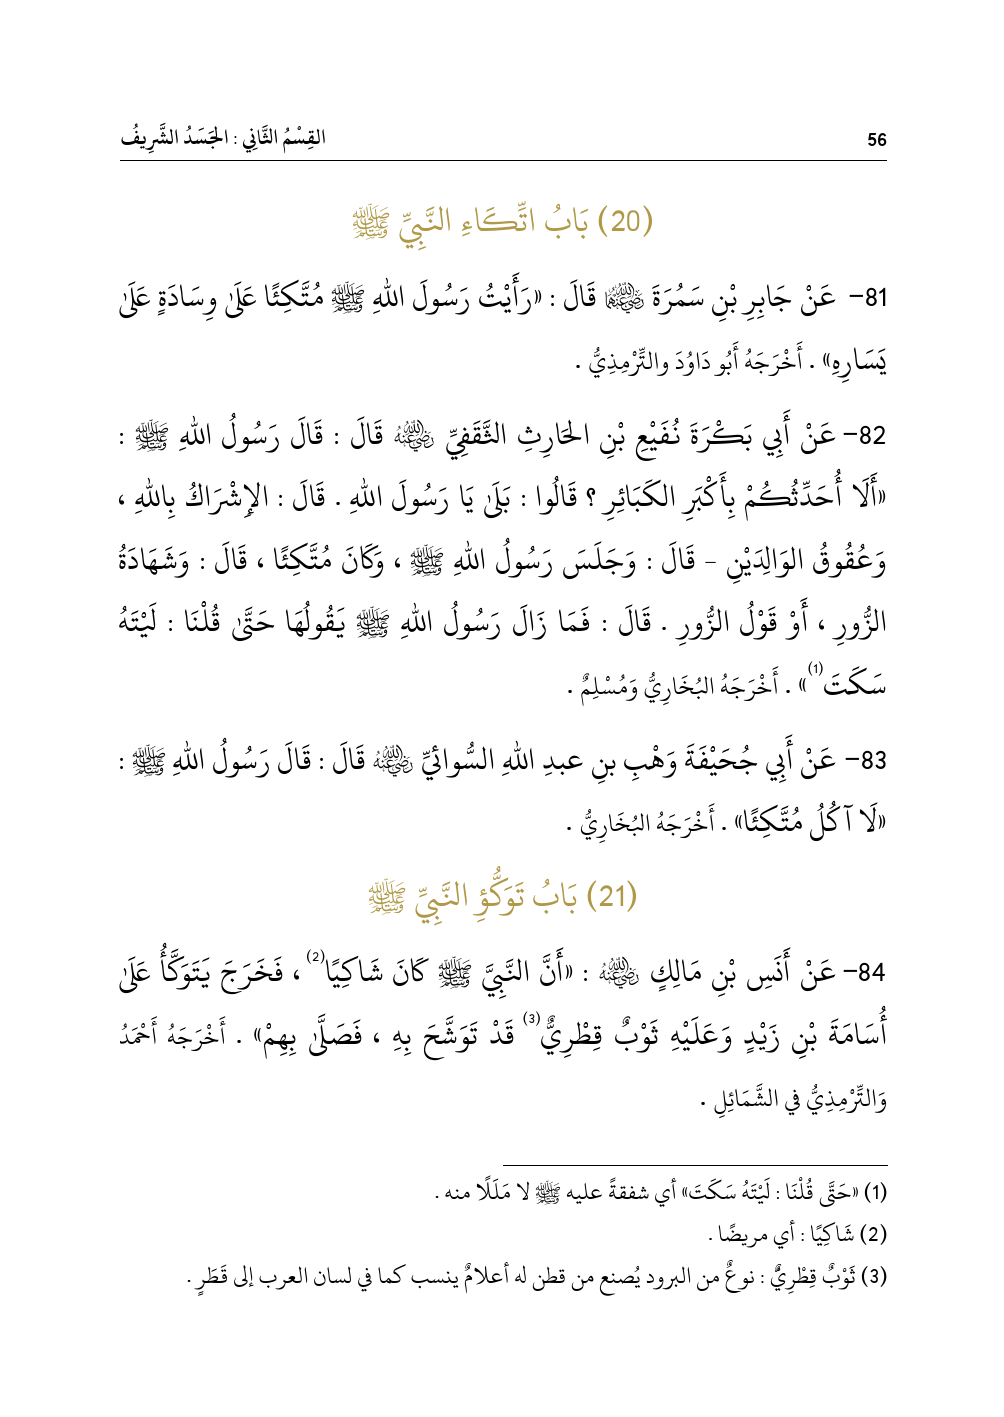 56 القِسْمُ الثَّانِي : الجَسَدُ الشَّرِيفُ
(20) بَابُ اتِّكَاءِ النَّبِيِّ ﷺ
81- عَنْ جَابِرِ بْنِ سَمُرَةَ رضي الله عنهما قَالَ : «رَأَيْتُ رَسُولَ اللهِ ﷺ مُتَّكِئًا عَلَىٰ وِسَادَةٍ عَلَىٰ
يَسَارِهِ» . أَخْرَجَهُ أَبُو دَاوُدَ والتِّرْمِذِيُّ .
82- عَنْ أَبِي بَكْرَةَ نُفَيْعِ بْنِ الحَارِثِ الثَّقَفِيِّ رضي الله عنه قَالَ : قَالَ رَسُولُ اللهِ ﷺ :
«أَلَا أُحَدِّثُكُمْ بِأَكْبَرِ الكَبَائِرِ ؟ قَالُوا : بَلَىٰ يَا رَسُولَ اللهِ . قَالَ : الإِشْرَاكُ بِاللهِ ،
وَعُقُوقُ الوَالِدَيْنِ - قَالَ : وَجَلَسَ رَسُولُ اللهِ ﷺ ، وَكَانَ مُتَّكِئًا ، قَالَ : وَشَهَادَةُ
الزُّورِ ، أَوْ قَوْلُ الزُّورِ . قَالَ : فَمَا زَالَ رَسُولُ اللهِ ﷺ يَقُولُهَا حَتَّىٰ قُلْنَا : لَيْتَهُ
سَكَتَ(1)» . أَخْرَجَهُ البُخَارِيُّ وَمُسْلِمٌ .
83- عَنْ أَبِي جُحَيْفَةَ وَهْبِ بنِ عبدِ اللهِ السُّوائيِّ رضي الله عنه قَالَ : قَالَ رَسُولُ اللهِ ﷺ :
«لَا آكُلُ مُتَّكِئًا» . أَخْرَجَهُ البُخَارِيُّ .
(21) بَابُ تَوَكُّؤِ النَّبِيِّ ﷺ
84- عَنْ أَنَسِ بْنِ مَالِكٍ رضي الله عنه : «أَنَّ النَّبِيَّ ﷺ كَانَ شَاكِيًا(2) ، فَخَرَجَ يَتَوَكَّأُ عَلَىٰ
أُسَامَةَ بْنِ زَيْدٍ وَعَلَيْهِ ثَوْبٌ قِطْرِيٌّ(3) قَدْ تَوَشَّحَ بِهِ ، فَصَلَّىٰ بِهِمْ» . أَخْرَجَهُ أَحْمَدُ
وَالتِّرْمِذِيُّ في الشَّمَائِلِ .
(1) «حَتَّى قُلْنَا : لَيْتَهُ سَكَتَ» أي شفقةً عليه ﷺ لا مَلَلًا منه .
(2) شَاكِيًا : أي مريضًا .
(3) ثَوْبٌ قِطْرِيٌّ : نوعٌ من البرود يُصنع من قطن له أعلامٌ ينسب كما في لسان العرب إلى قَطَرٍ .